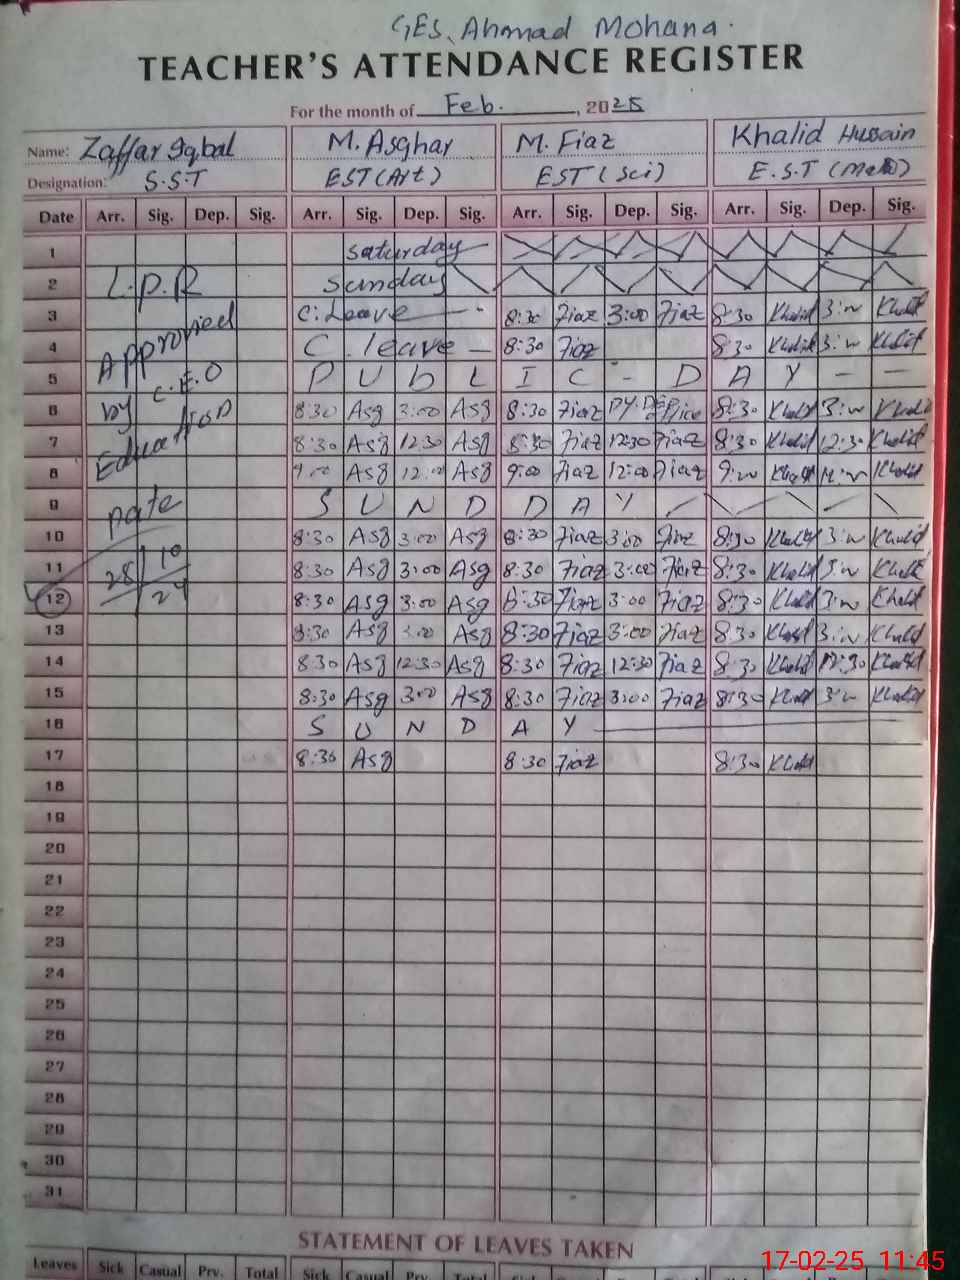 GES, Ahmad Mohana.
TEACHER'S ATTENDANCE REGISTER
For the month of Feb. , 2025
Name: Zaffar Iqbal M. Asghar M. Fiaz Khalid Hussain
Designation: S.S.T EST (Art) EST (Sci) E.S.T (Math)
Date Arr. Sig. Dep. Sig. Arr. Sig. Dep. Sig. Arr. Sig. Dep. Sig. Arr. Sig. Dep. Sig.
1 Saturday
2 L.P.R Sunday
3 Approved C. Leave 8:30 Fiaz 3:00 Fiaz 8:30 Khalid 3:00 Khalid
4 C. leave 8:30 Fiaz 8:30 Khalid 3:00 Khalid
5 C.E.O P U b L I C - D A Y - -
6 by 8:30 Asg 3:00 Asg 8:30 Fiaz 8:30 Khalid 3:00 Khalid
7 Education 8:30 Asg 12:30 Asg 8:30 Fiaz 12:30 Fiaz 8:30 Khalid 12:30 Khalid
8 9:00 Asg 12:00 Asg 9:00 Fiaz 12:00 Fiaz 9:00 Khalid 12:00 Khalid
9 Date S U N D D A Y
10 8:30 Asg 3:00 Asg 8:30 Fiaz 3:00 Fiaz 8:30 Khalid 3:00 Khalid
11 28 10 8:30 Asg 3:00 Asg 8:30 Fiaz 3:00 Fiaz 8:30 Khalid 3:00 Khalid
12 24 8:30 Asg 3:00 Asg 8:30 Fiaz 3:00 Fiaz 8:30 Khalid 3:00 Khalid
13 8:30 Asg 3:00 Asg 8:30 Fiaz 3:00 Fiaz 8:30 Khalid 3:00 Khalid
14 8:30 Asg 12:30 Asg 8:30 Fiaz 12:30 Fiaz 8:30 Khalid 12:30 Khalid
15 8:30 Asg 3:00 Asg 8:30 Fiaz 3:00 Fiaz 8:30 Khalid 3:00 Khalid
16 S U N D A Y
17 8:30 Asg 8:30 Fiaz 8:30 Khalid
18
19
20
21
22
23
24
25
26
27
28
29
30
31
STATEMENT OF LEAVES TAKEN
Leaves Sick Casual Prv. Total Sick Casual Prv. Total
17-02-25 11:45